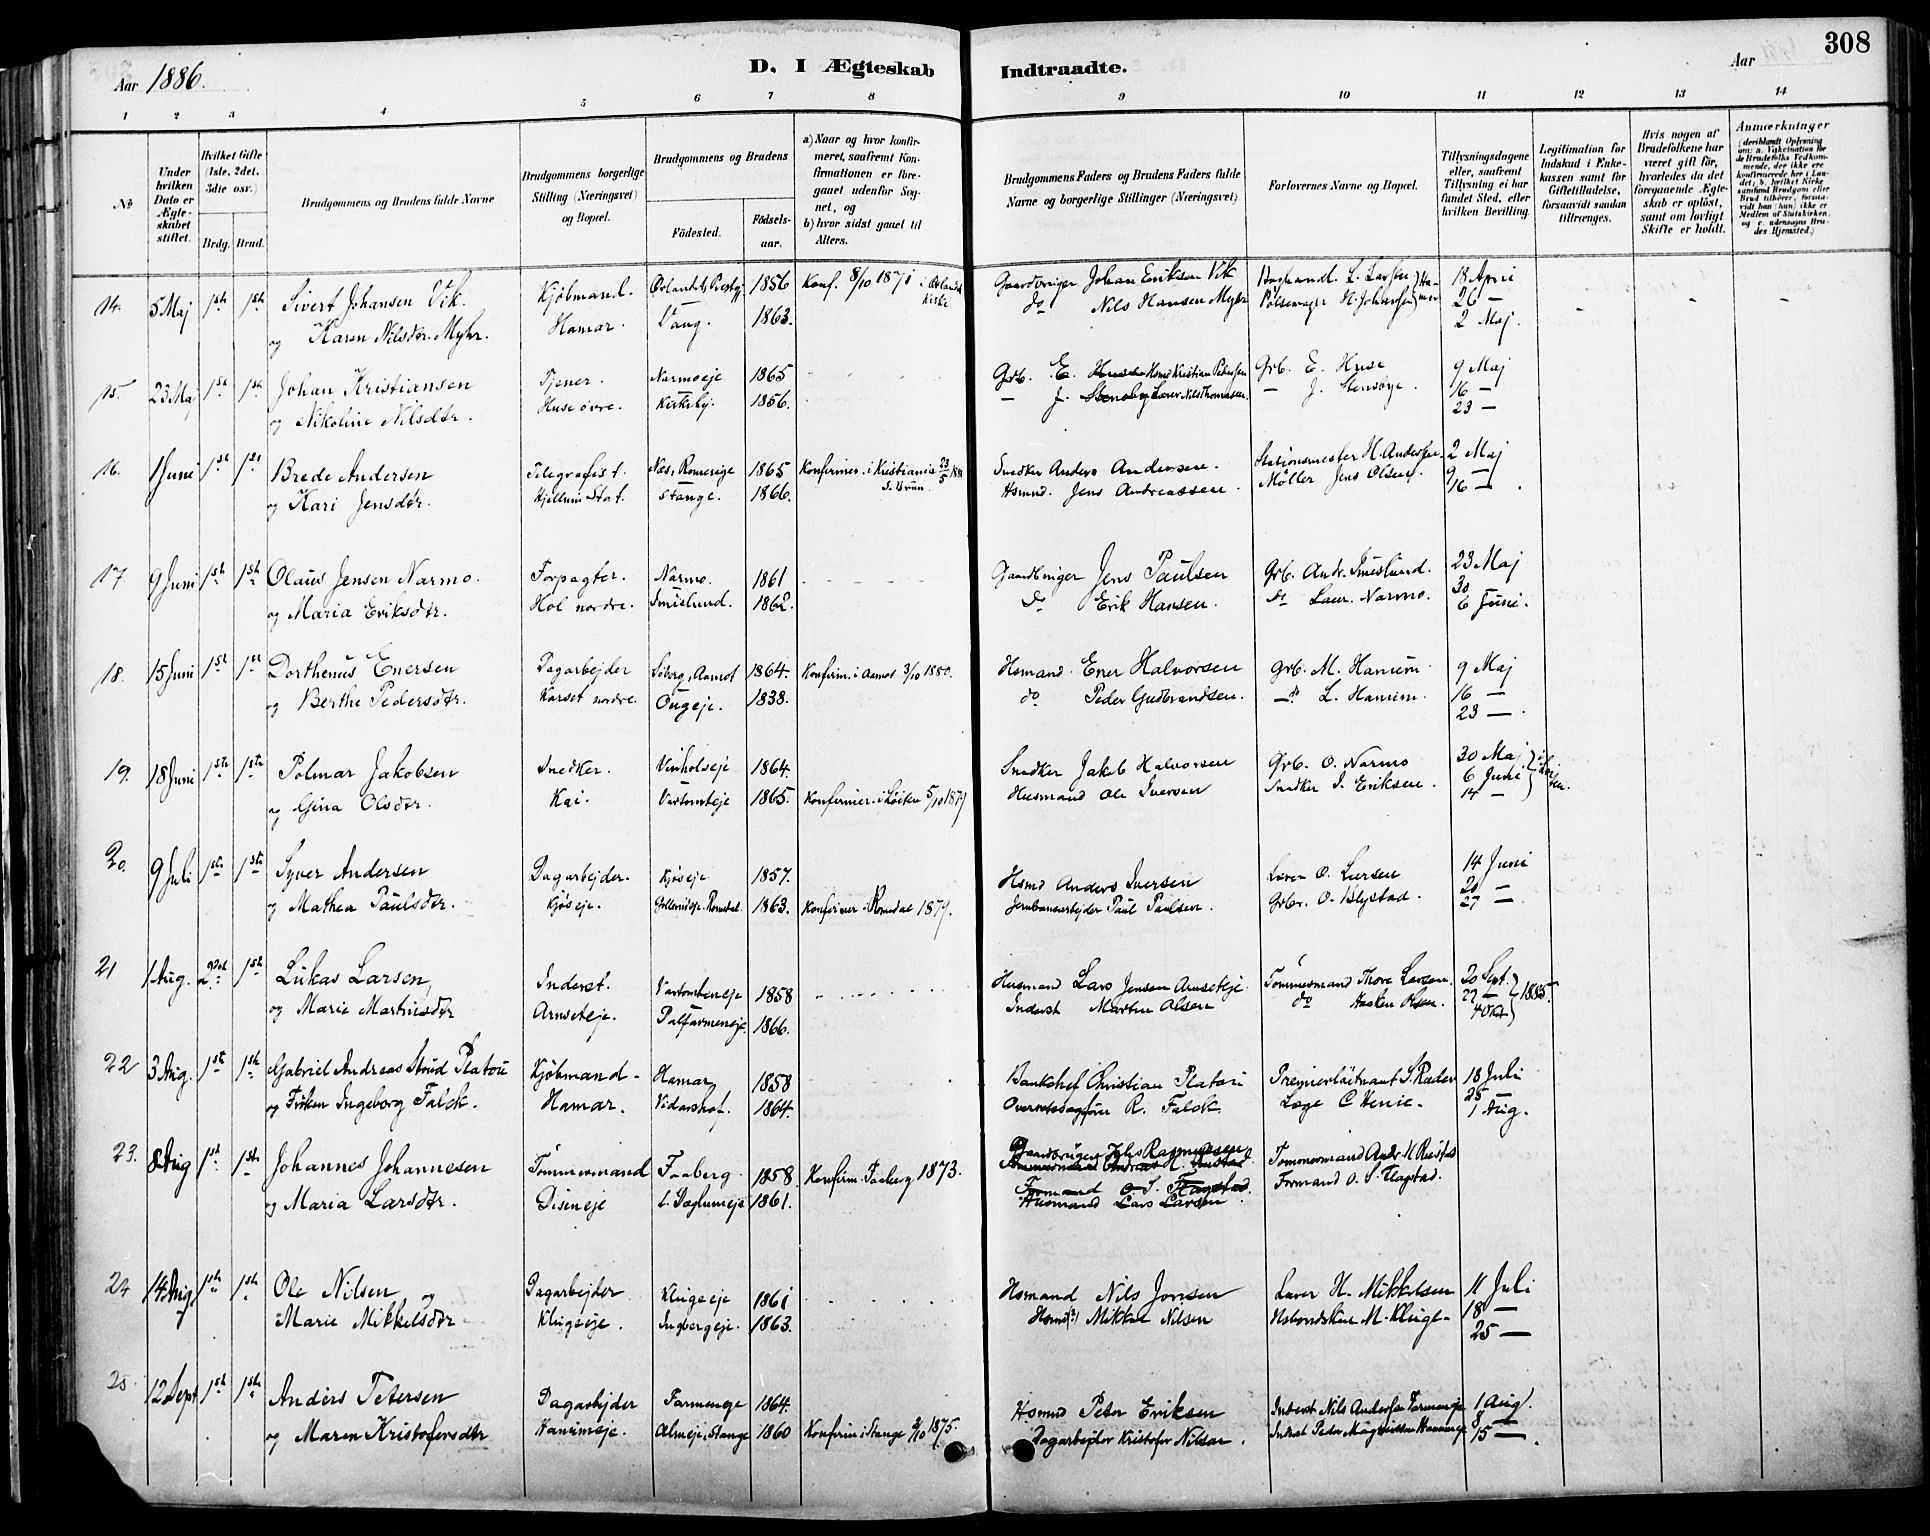 308
Aar 1886.
D. I Ægteskab Indtraadte.
Aar
1 2 3 4 5 6 7 8 9 10 11 12 13 14
No.
Under hvilken Dato er Ægteskabet stiftet.
Hvilket Gifte (1ste, 2det, 3die osv.)
Brdg. Brud.
Brudgommens og Brudens fulde Navne
Brudgommens borgerlige Stilling (Næringsvei) og Bopæl.
Brudgommens og Brudens
Födested. Födsels-aar.
a) Naar og hvor konfirmeret, saafremt Konfirmationen er foregaaet udenfor Sognet, og
b) hvor sidst gaaet til Alters.
Brudgommens Faders og Brudens Faders fulde Navne og borgerlige Stillinger (Næringsvei)
Forlovernes Navne og Bopæl.
Tillysningsdagene eller, saafremt Tillysning ei har fundet Sted, efter hvilken Bevilling.
Legitimation for Indskud i Enkekassen samt for Giftetilladelse, forsaavidt saadan tiltrænges.
Hvis nogen af Brudefolkene har været gift för, hvorledes da det foregaaende Ægteskab er oplöst, samt om lovligt Skifte er holdt.
Anmærkninger (deriblandt Oplysning om: a. Vakcination for de Brudefolks Vedkommende, der ikke ere konfirmerede her i Landet; b. hvilket Kirkesamfund Brudgom eller Brud tilhörer, forsaavidt han (hun) ikke er Medlem af Statskirken, og c. udensogns Brudes Hjemsted.)
14. 5 Maj 1ste 1ste Sivert Johansen Vik. Kjöbmand. 1856 Konf. 8/10 1871 i Ørlandets Kirke Gaardbruger Johan Eriksen Vik 18 April
og Karen Nilsdtr. Myhr. Hamar. Vang. 1863. do Nils Hansen Myhr H. Johansen 26 —
2 Maj.
15. 23 Maj 1ste 1ste Johan Kristiansen Tjener. Narmoeje 1865 Grb. E. Huse Hsmd Kristian Pedersen Grb. E. Huse 9 Maj
og Nikoline Nilsdtr. Huse övre. Kirkeby. 1856. — J. Nils Thomasen. — J. Stensörge. 16 —
23 —
16. 1 Juni 1ste 1ste Brede Andersen Telegrafist. Næs, Romerige 1865 Konfirmer. i Kristiania 23/5 Snedker Anders Andersen. Stationsmester H. Andersen. 2 Maj
og Kari Jensdtr. Kjellum Stat. Stange. 1866. Hsmnd. Jens Andreassen. Möller Jens Olsen. 9 —
16 —.
17. 9 Juni 1ste 1ste Olaus Jensen Narmo. Forpagter. Narmo. 1861 Gaardbruger Jens Paulsen Grb. Andr. Imeslund. 23 Maj
og Maria Eriksdtr. Hol nordre. Imeslund. 1862. do Erik Hansen. do Laur. Narmo. 30
6 Juni.
18. 15 Juni 1ste 1ste Dorthenus Enersen Dagarbejder Söberg, Aamot 1864. Konfirm. i Aamot 3/10 1880. Hsmand. Ener Halvorsen Grb. M. Hanum. 9 Maj
og Berthe Pedersdtr. Karset nordre. 1838. do Peder Gudbrandsen. —do L. Hanum. 16 —
23 —.
19. 18 Juni 1ste 1ste Polmar Jakobsen Snedker. 1864. Snedker Jakob Halvorsen Grb. O. Narmo 30 Maj
og Gina Olsdtr. Kai. 1865. Konfirmer. i Löiten 5/10 1879 Husmand Ole Iversen Snedker I. Eriksen. 6 Juni
14 —
20. 9 Juli 1ste 1ste Syver Andersen Dagarbejder. Kjöseje 1857. Hsmd Anders Iversen O. Larsen 14 Juni
og Mathea Paulsdtr. Kjöseje. 1863. Konfirmer i Romedal 1879. Jernbanearbejder Paul Paulsen. Grbr. O. Blystad. 20 —
27 —.
21 1 Aug. 2det 1ste Lukas Larsen Inderst. 1858 Husmand Lars Jensen Arnseteje. Tömmermand Thore Larsen. 20 Sept. 1885.
og Marie Martinsdtr Arnseteje. 1866. Inderst Martin Olsen do Haaken Olsen. 27 —
4 Okt
22 3 Aug. 1ste 1ste Gabriel Andreas Stoud Platou Kjöbmand. Hamar 1858 Bankchef Christian Platou Premierlöitnant S. Ræder 18 Juli
og Fröken Ingeborg Falck. Hamar. Vidarshof. 1864. Overretssagförer R. Falck Læge C. Henie. 25
1 Aug.
23. 8 Aug 1ste 1ste Johannes Johannesen Tömmermand Faaberg. 1858 Konfirm. Faaberg 1873. Gaardbruger Johs Rasmussen Tömmermand Andr. H. Rustad
og Maria Larsdtr. Disineje 1861. Husmand Lars Larsen Formand O. S. Flagstad.
24 14 Aug 1ste 1ste Ole Nilsen og Dagarbejder Klugeeje 1861 Hsmand Nils Jonsen H. Mikkelsen 11 Juli
Marie Mikkelsdtr Klugeeje. Ingbergeje. 1863. Hsmd Mikkel Nilsen M. Kluge 18 —
25 —
25 12 Sept 1ste 1ste Anders Petersen Dagarbejder 1864. Hsmnd Peter Eriksen Inderst Nils Andersen 1 Aug.
og Maren Kristofersdtr Hanumeje. Almeje, Stange 1860 Konfirm. i Stange 1875. Dagarbejder Kristofer Nilsen. Inderst Peder 8 —
15 —.